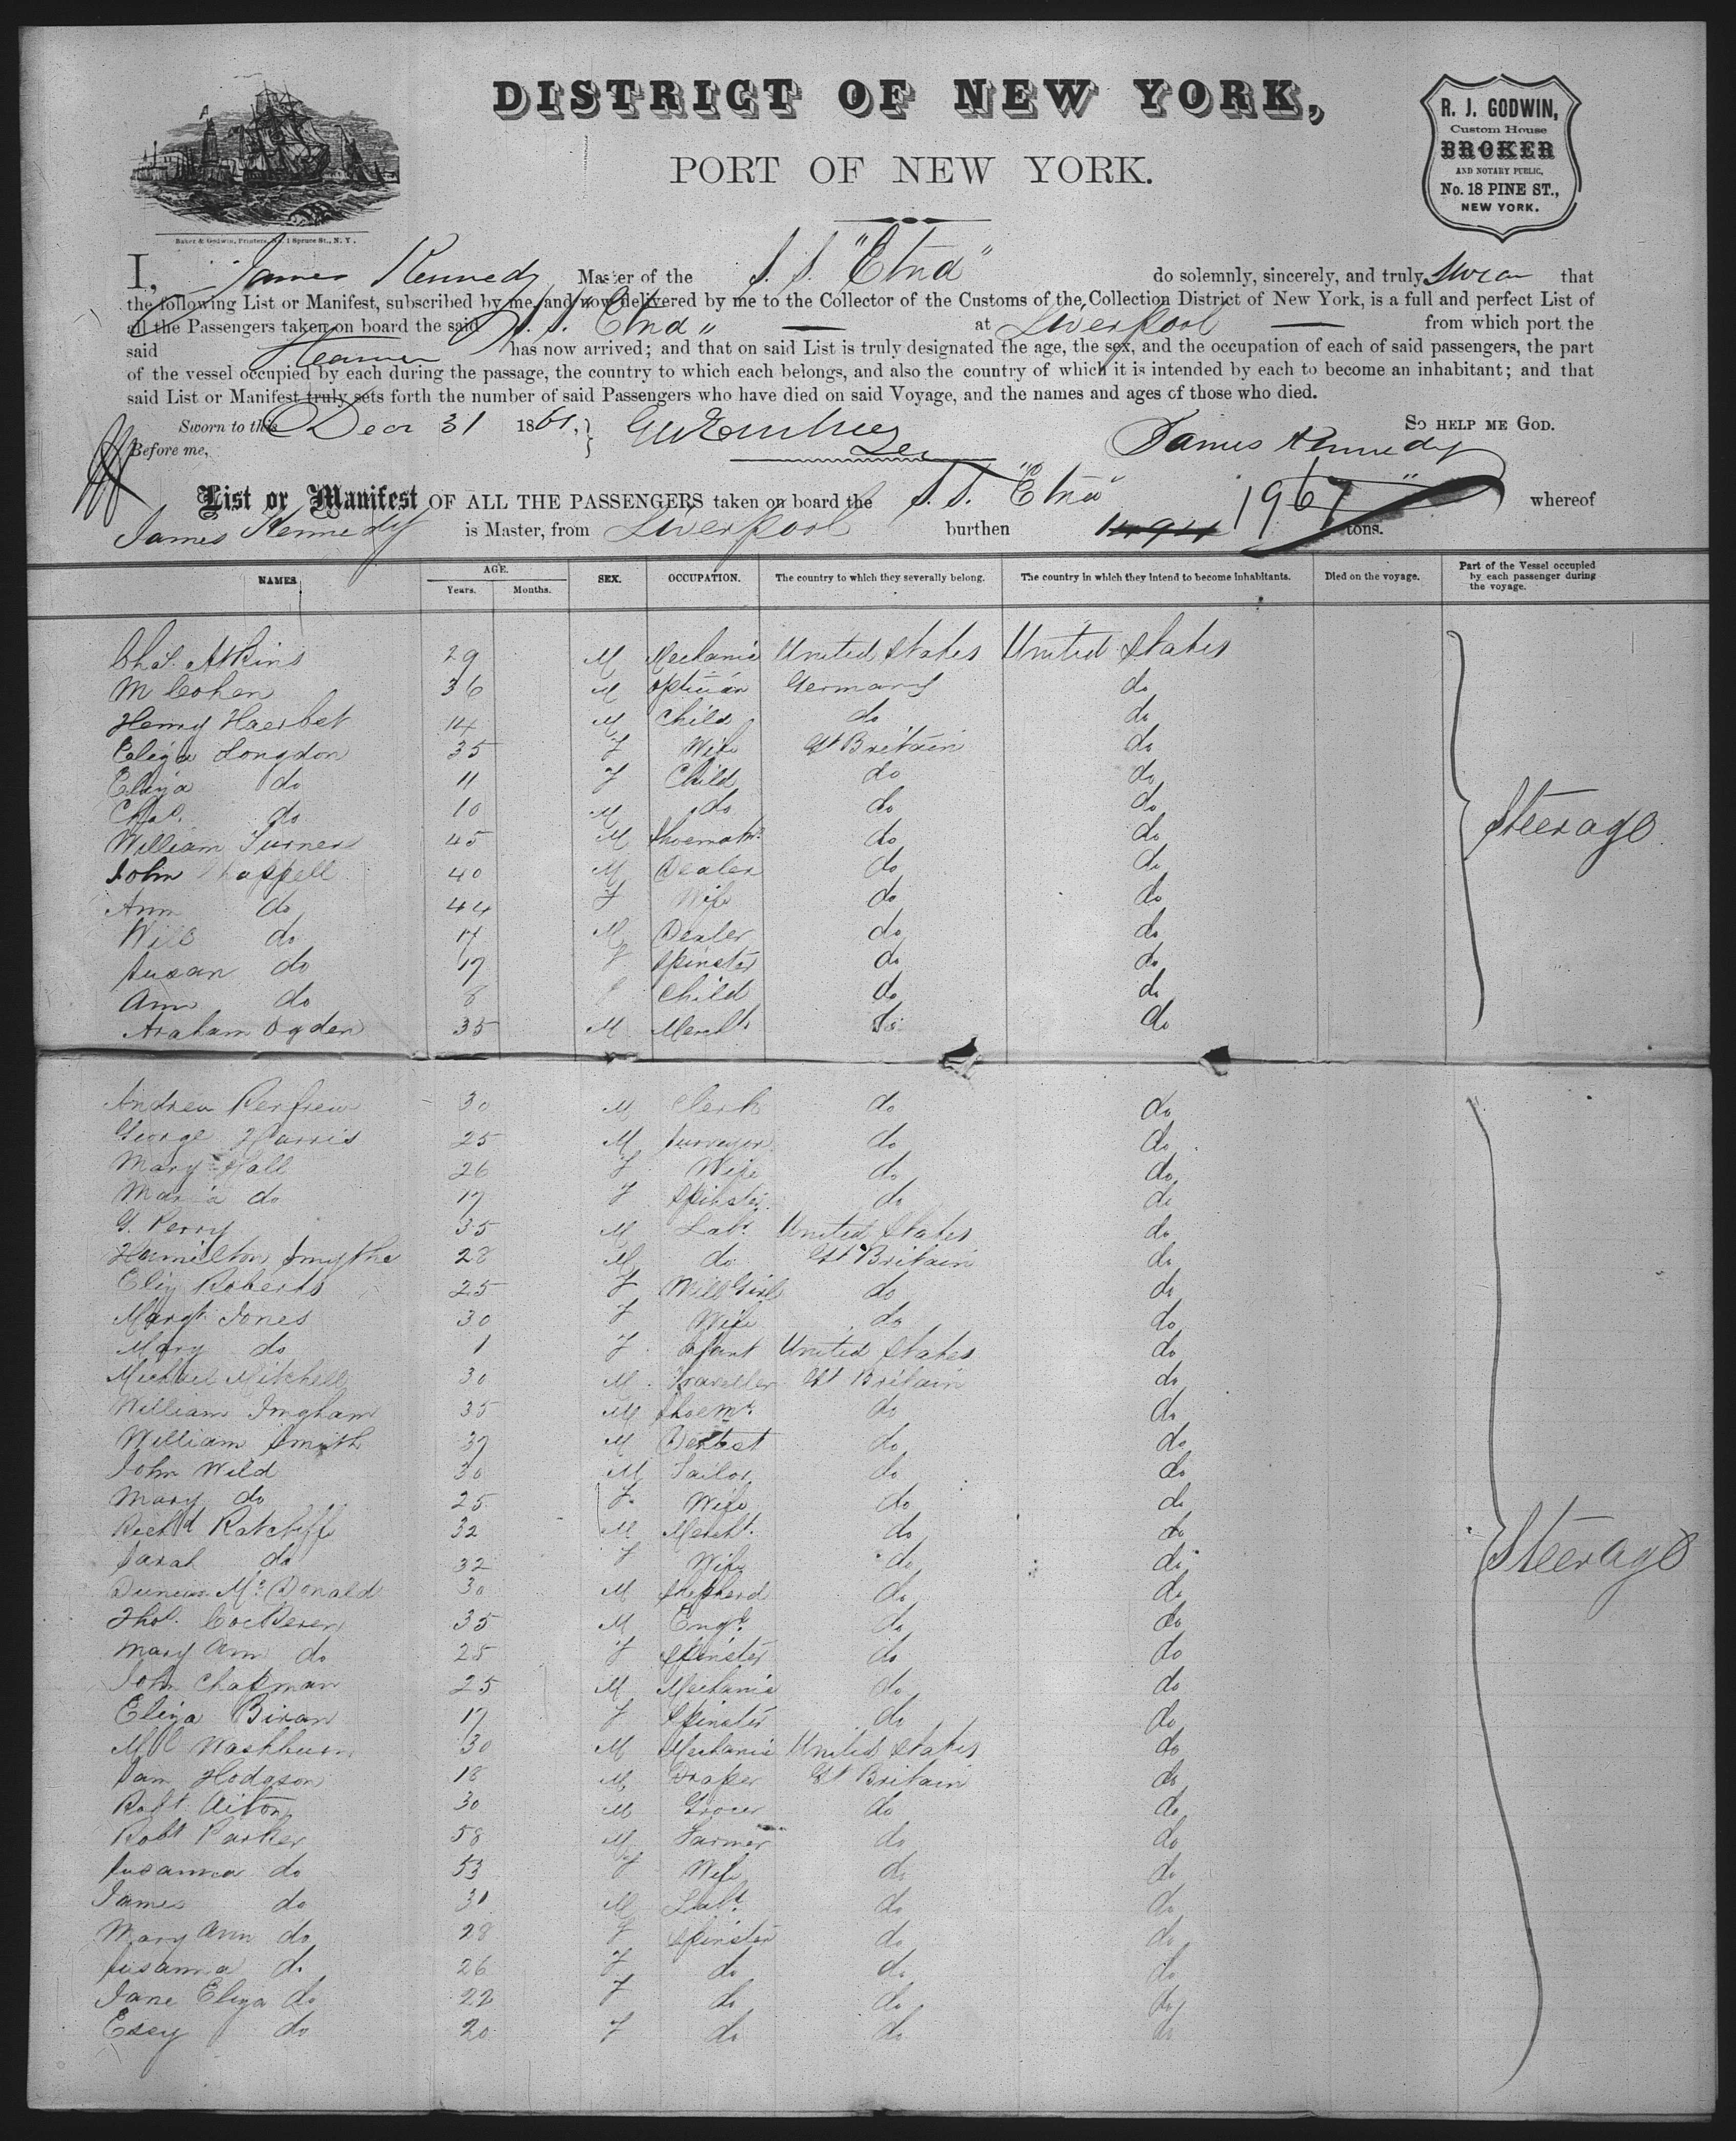 DISTRICT OF NEW YORK,
PORT OF NEW YORK.
R. J. GODWIN,
Custom House
BROKER
AND NOTARY PUBLIC,
No. 18 PINE ST.,
NEW YORK.
Baker & Godwin, Printers, No. 1 Spruce St., N. Y.
I, James Kennedy Master of the S. S. "Etna" do solemnly, sincerely, and truly swear that
the following List or Manifest, subscribed by me, and now delivered by me to the Collector of the Customs of the Collection District of New York, is a full and perfect List of
all the Passengers taken on board the said S. S. Etna " at Liverpool from which port the
said Steamer has now arrived; and that on said List is truly designated the age, the sex, and the occupation of each of said passengers, the part
of the vessel occupied by each during the passage, the country to which each belongs, and also the country of which it is intended by each to become an inhabitant; and that
said List or Manifest truly sets forth the number of said Passengers who have died on said Voyage, and the names and ages of those who died.
Sworn to this Decr 31 1861, } So HELP ME GOD.
Before me, James Kennedy
List or Manifest OF ALL THE PASSENGERS taken on board the S. S. "Etna" whereof
James Kennedy is Master, from Liverpool burthen 1494 1967 tons.
NAMES AGE. SEX. OCCUPATION. The country to which they severally belong. The country in which they intend to become inhabitants. Died on the voyage. Part of the Vessel occupied by each passenger during the voyage.
Years. Months.
Chas. Atkins 29 M Mechanic United States United States
M Cohen 36 M Optician Germany do
Henry Haerbet 14 M Child do do
Eliza Longdon 35 F Wife Gt Britain do
Eliza do 11 F Child do do
Chas. do 10 M do do do
William Turner 45 M Shoemakr. do do Steerage
John Chappell 40 M Dealer do do
Ann do 44 F Wife do do
Will do 17 M Dealer do do
Susan do 17 F Spinster do do
Ann do 8 F Child do do
Araham Ogden 35 M Mercht. do do
Andrew Renfrew 30 M Clerk do do
George Harris 25 M Surveyor do do
Mary Hall 26 F Wife do do
Maria do 17 F Spinster do do
G. Perry 35 M Labr. United States do
Hamilton Smythe 28 M do Gt Britain do
Eliz Roberts 25 F Mill Girl do do
Margt. Jones 30 F Wife do do
Mary do 1 F Infant United States do
Michael Mitchell 30 M Traveller Gt Britain do
William Ingham 35 M Shoemr. do do
William Smith 37 M Dentist do do
John Wild 30 M Tailor do do
Mary do 25 F Wife do do
Richd Ratcliff 32 M Mercht. do do
Sarah do 32 F Wife do do Steerage
Duncan McDonald 30 M Shepherd do do
Thos. Cockeren 35 M Engr. do do
Mary Ann do 25 F Spinster do do
John Chapman 25 M Mechanic do do
Eliza Biran 17 F Spinster do do
M C Washburn 30 M Mechanic United States do
Sam Hodgson 18 M Draper Gt Britain do
Robt. Aiton 30 M Grocer do do
Robt Parker 58 M Farmer do do
Susanna do 53 F Wife do do
James do 31 M Labr. do do
Mary Ann do 28 F Spinster do do
Susanna do 26 F do do do
Jane Eliza do 22 F do do do
Esey do 20 F do do do